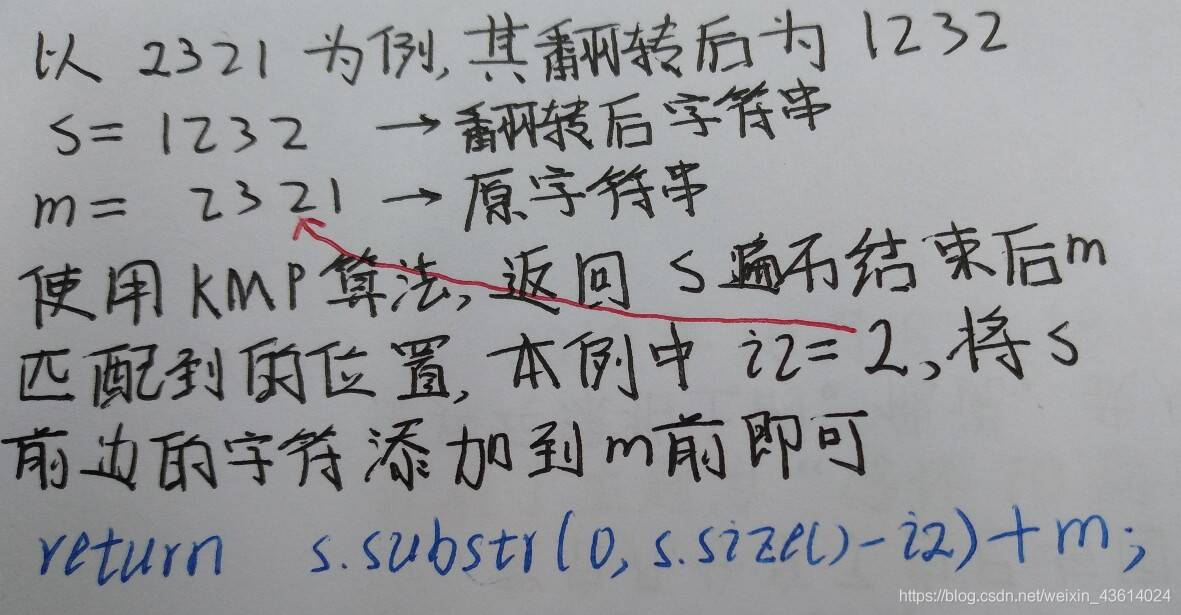 以 2321 为例,其翻转后为 1232
s= 1232 → 翻转后字符串
m= 2321 → 原字符串
使用KMP算法,返回 s遍历结束后m
匹配到的位置,本例中 i2=2,将s
前边的字符添加到m前即可
return s.substr(0,s.size()-i2)+m;
https://blog.csdn.net/weixin_43614024